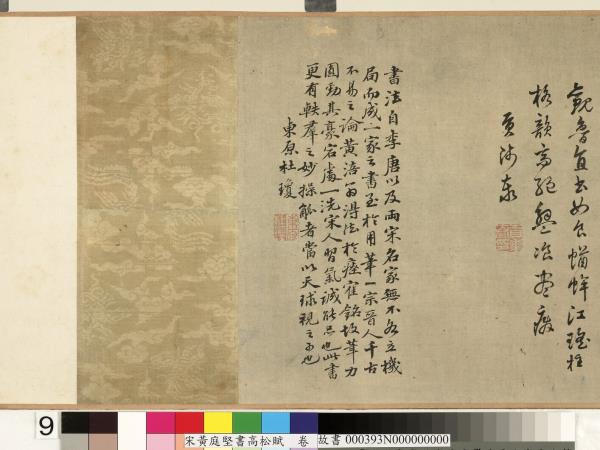 觀魯直書如食蝤蛑江瑤柱
格韻高絕盤飧盡廢
書法自李唐以及兩宋名家無不各立機
局而成一家言書至於用筆一宗晉人千古
不易之論黃涪翁得法於瘞寉銘故筆力
圓勁其豪宕處一洗宋人習氣誠能品也此書
更有軼群之妙操觚者當以天球視之可也
東原杜瓊
9
宋黃庭堅書高松賦 卷 故書 000393N000000000